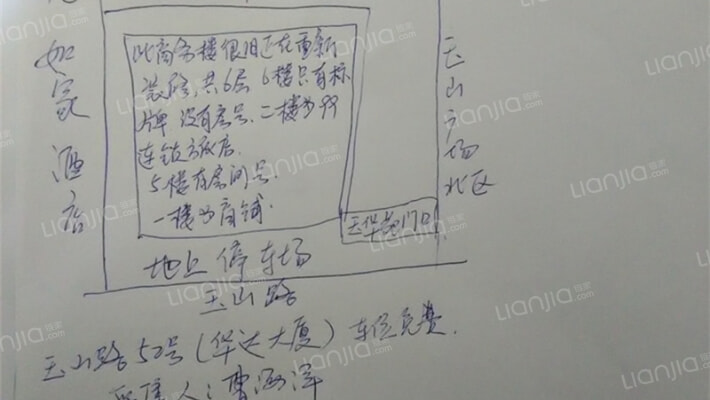 如家酒店
此商务楼很旧正在重新
装修,共6层 6楼只有标
牌 没有房号、二楼为99
连锁旅店.
5楼有房间号.
一楼为商铺.
玉山广场北区
地上停车场
玉山路
玉山路50号(华达大厦) 车位免费.
人:曹
Lianjia.com 链家